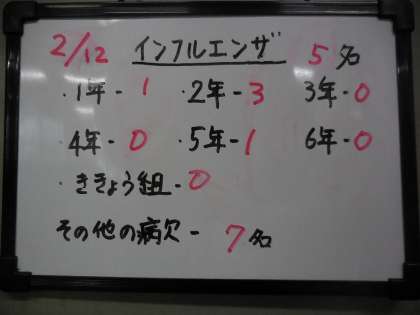 2/12 インフルエンザ 5名
・1年-1 ・2年-3 3年-0
・4年-0 ・5年-1 6年-0
・ききょう組-0
その他の病欠- 7名